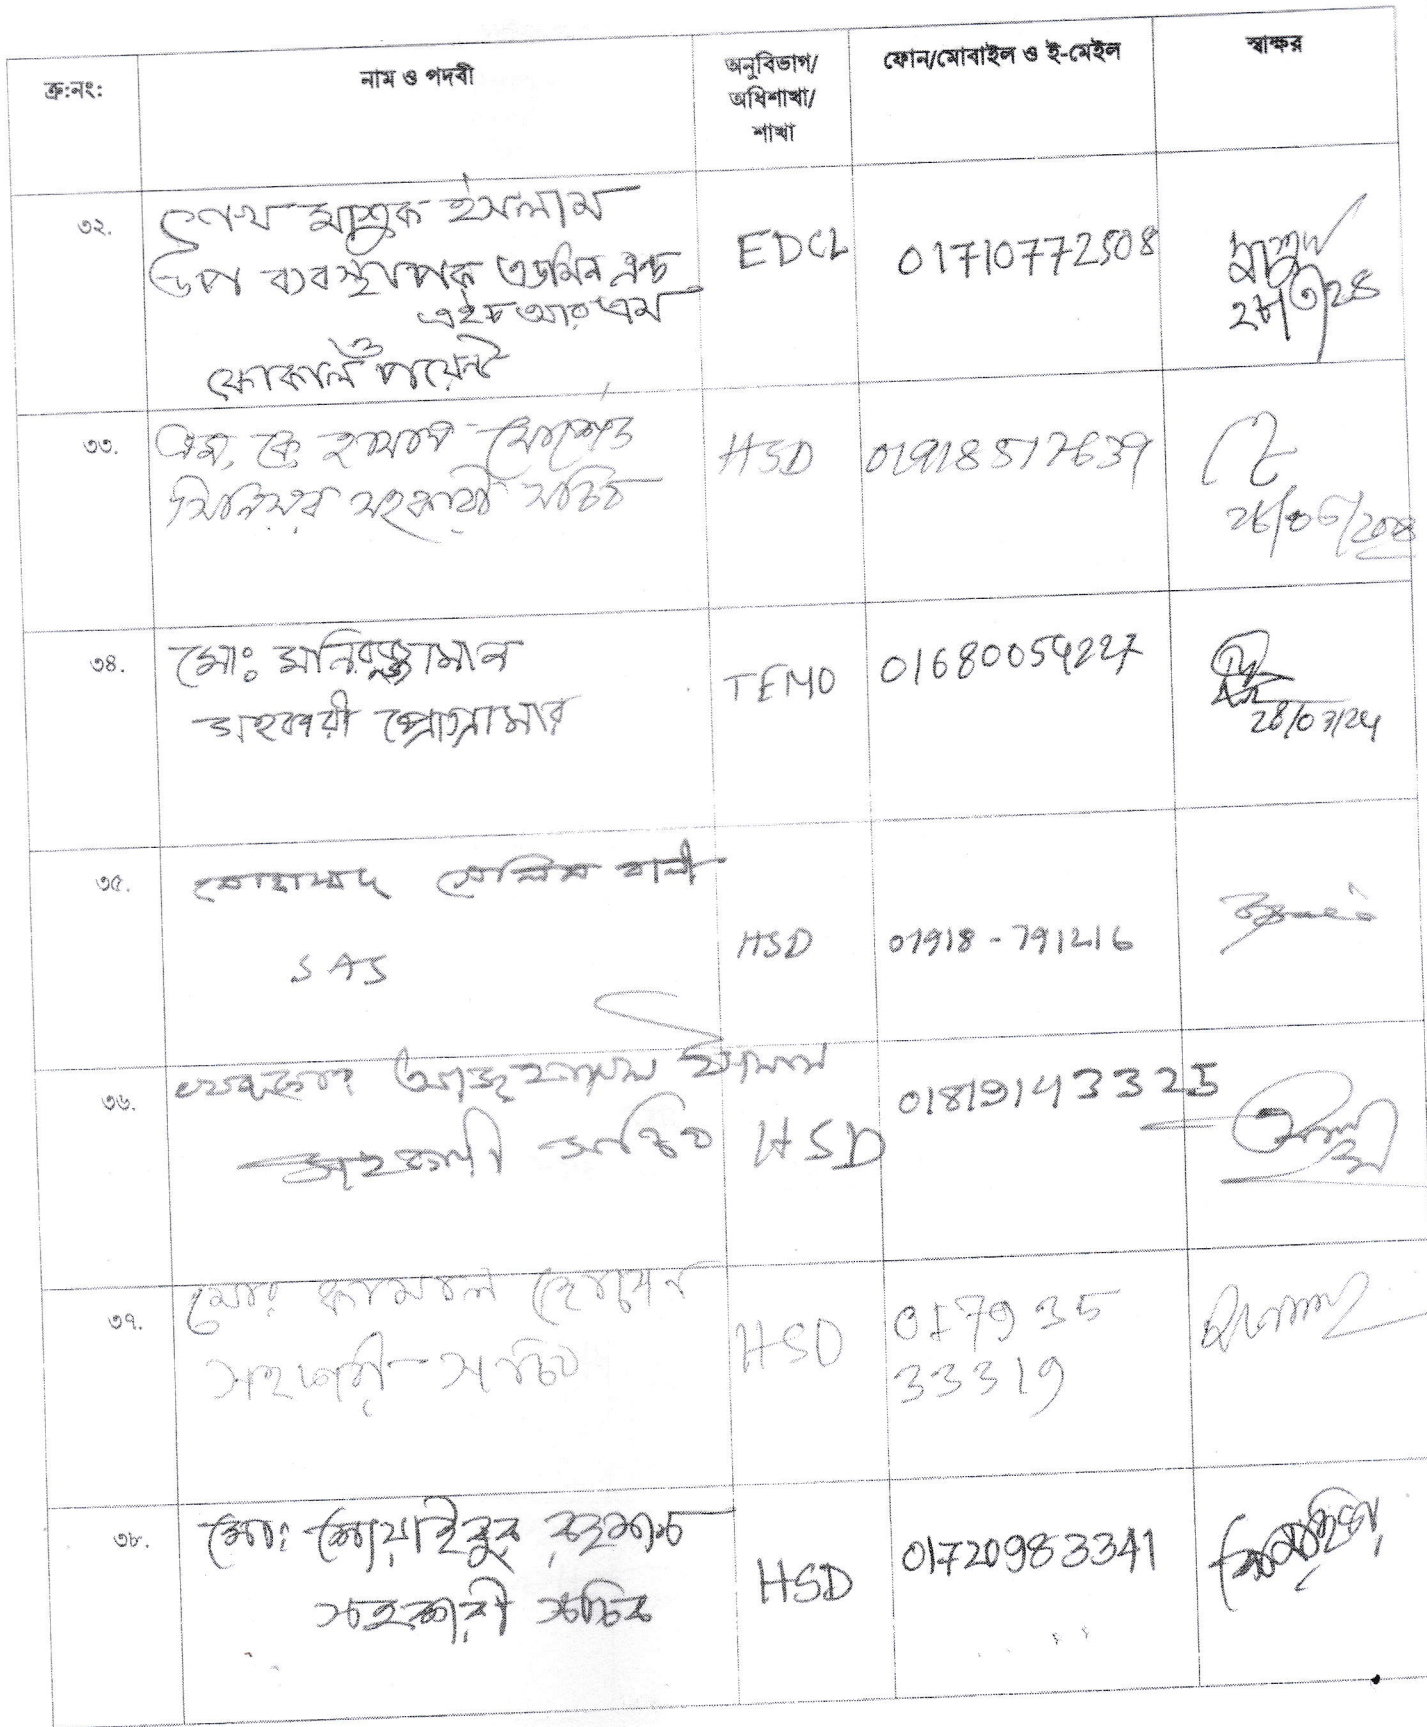 ক্র:নং:
নাম ও পদবী
অনুবিভাগ/
অধিশাখা/
শাখা
ফোন/মোবাইল ও ই-মেইল
স্বাক্ষর
৩২.
শেখ মাশুক ইসলাম
উপ ব্যবস্থাপক এডমিন এন্ড
এইচ আর এম
ও
ফোকাল পয়েন্ট
EDCL
01710772508
৩৩.
এম, কে হাসান
সিনিয়র সহকারী সচিব
HSD
01918517639
৩৪.
মোঃ মনিরুজ্জামান
সহকারী প্রোগ্রামার
TEMO
01680054227
28/03/24
৩৫.
মোহাম্মদ সেলিম
SAS
HSD
01918-791216
৩৬.
সহকারী সচিব
HSD
01819143325
৩৭.
মোঃ কামাল হোসেন
সহকারী সচিব
HSD
017935
33319
৩৮.
মোঃ রহমান
সহকারী সচিব
HSD
01720983341